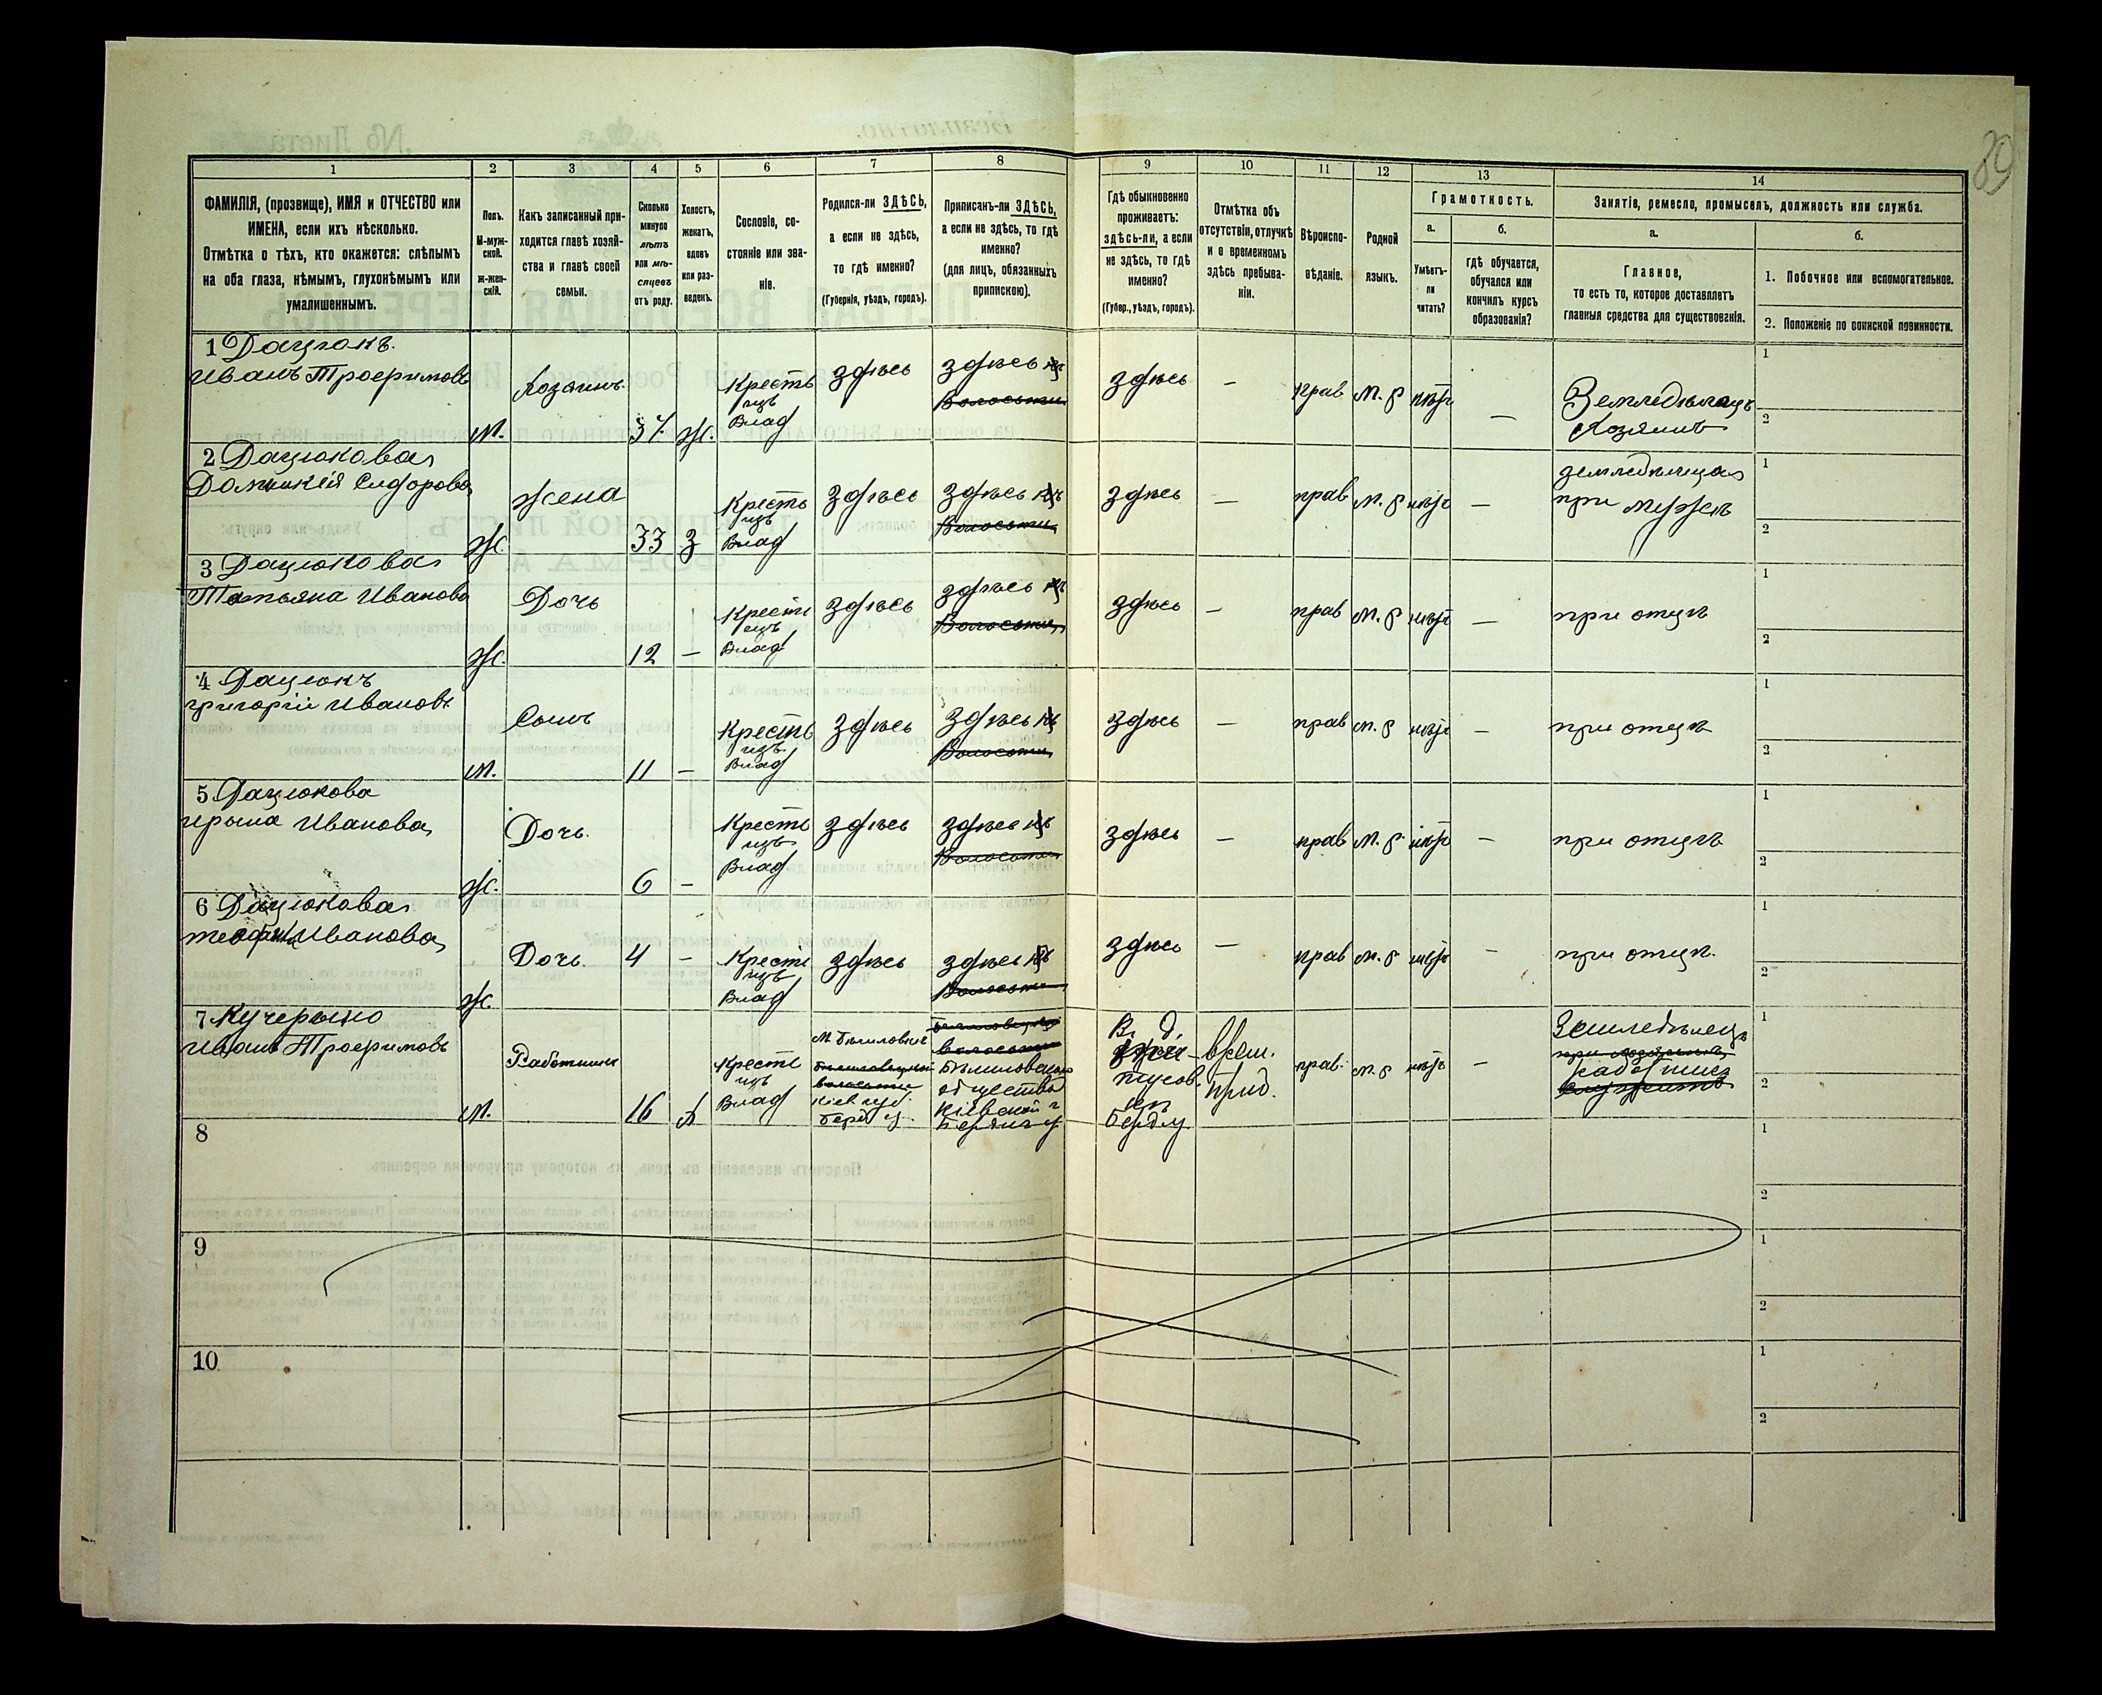 89
1
2
3
4
5
6
7
8
9
10
11
12
13
14
ФАМИЛІЯ, (прозвище), ИМЯ и ОТЧЕСТВО или
ИМЕНА, если ихъ нѣсколько.
Отмѣтка о тѣхъ, кто окажется: слѣпымъ
на оба глаза, нѣмымъ, глухонѣмымъ или
умалишеннымъ.
Полъ.
М-муж-
ской.
ж-жен-
скій.
Какъ записанный при-
ходится главѣ хозяй-
ства и главѣ своей
семьи.
Сколько
минуло
лѣтъ
или мѣ-
сяцевъ
отъ роду.
Холостъ,
женатъ,
вдовъ
или раз-
веденъ.
Сословіе, со-
стояніе или зва-
ніе.
Родился-ли ЗДѢСЬ,
а если не здѣсь,
то гдѣ именно?
(Губернія, уѣздъ, городъ).
Приписанъ-ли ЗДѢСЬ,
а если не здѣсь, то гдѣ
именно?
(для лицъ, обязанныхъ
припискою).
Гдѣ обыкновенно
проживаетъ:
здѣсь-ли, а если
не здѣсь, то гдѣ
именно?
(Губер., уѣздъ, городъ).
Отмѣтка объ
отсутствіи, отлучкѣ
и о временномъ
здѣсь пребыва-
ніи.
Вѣроиспо-
вѣданіе.
Родной
языкъ.
Грамотность.
а.
Умѣетъ-
ли
читать?
б.
гдѣ обучается,
обучался или
кончилъ курсъ
образованія?
Занятіе, ремесло, промыселъ, должность или служба.
а.
Главное,
то есть то, которое доставляетъ
главныя средства для существованія.
б.
1. Побочное или вспомогательное.
2. Положеніе по воинской повинности.
1 Дацюкъ
Иванъ Трофимовъ
м.
Хозяинъ
37
ж.
Крестъ
изъ
Влад
здѣсь
здѣсь
Волости
здѣсь
—
прав
м. р
нѣтъ
—
Земледѣлецъ
Хозяинъ
1
2
2 Дацюкова
Домникія Сидорова
Ж.
Жена
33
з
Крестъ
изъ
Влад
здѣсь
здѣсь
Волости
здѣсь
—
прав
м. р
нѣтъ
—
при мужѣ
1
2
3 Дацюкова
Татьяна Иванова
Ж.
Дочь
12
—
Крестъ
изъ
Влад
здѣсь
здѣсь
Волости
здѣсь
—
прав
м. р
нѣтъ
—
при отцѣ
1
2
4 Дацюкъ
Григорій Ивановъ
м.
Сынъ
11
—
Крестъ
изъ
Влад
здѣсь
здѣсь
Волости
здѣсь
—
прав
м. р
нѣтъ
—
при отцѣ
1
2
5 Дацюкова
Ирына Иванова
Ж.
Дочь.
6
—
Крестъ
изъ
Влад
здѣсь
здѣсь
Волости
здѣсь
—
прав
м. р
нѣтъ
—
при отцѣ
1
2
6 Дацюкова
Иванова
Ж.
Дочь.
4
—
Крестъ
изъ
Влад
здѣсь
здѣсь
Волости
здѣсь
—
прав
м. р
нѣтъ
—
при отцѣ.
1
2
7
Иванъ Трофимовъ
м.
Работникъ
16
х
Крестъ
изъ
Влад
волости
Кіев губ.
Берд у.
волости
общества
Кіевской г
Берд у.
врем.
прав.
м. р
нѣтъ
—
Земледѣлецъ
1
2
8
1
2
9
1
2
10
1
2